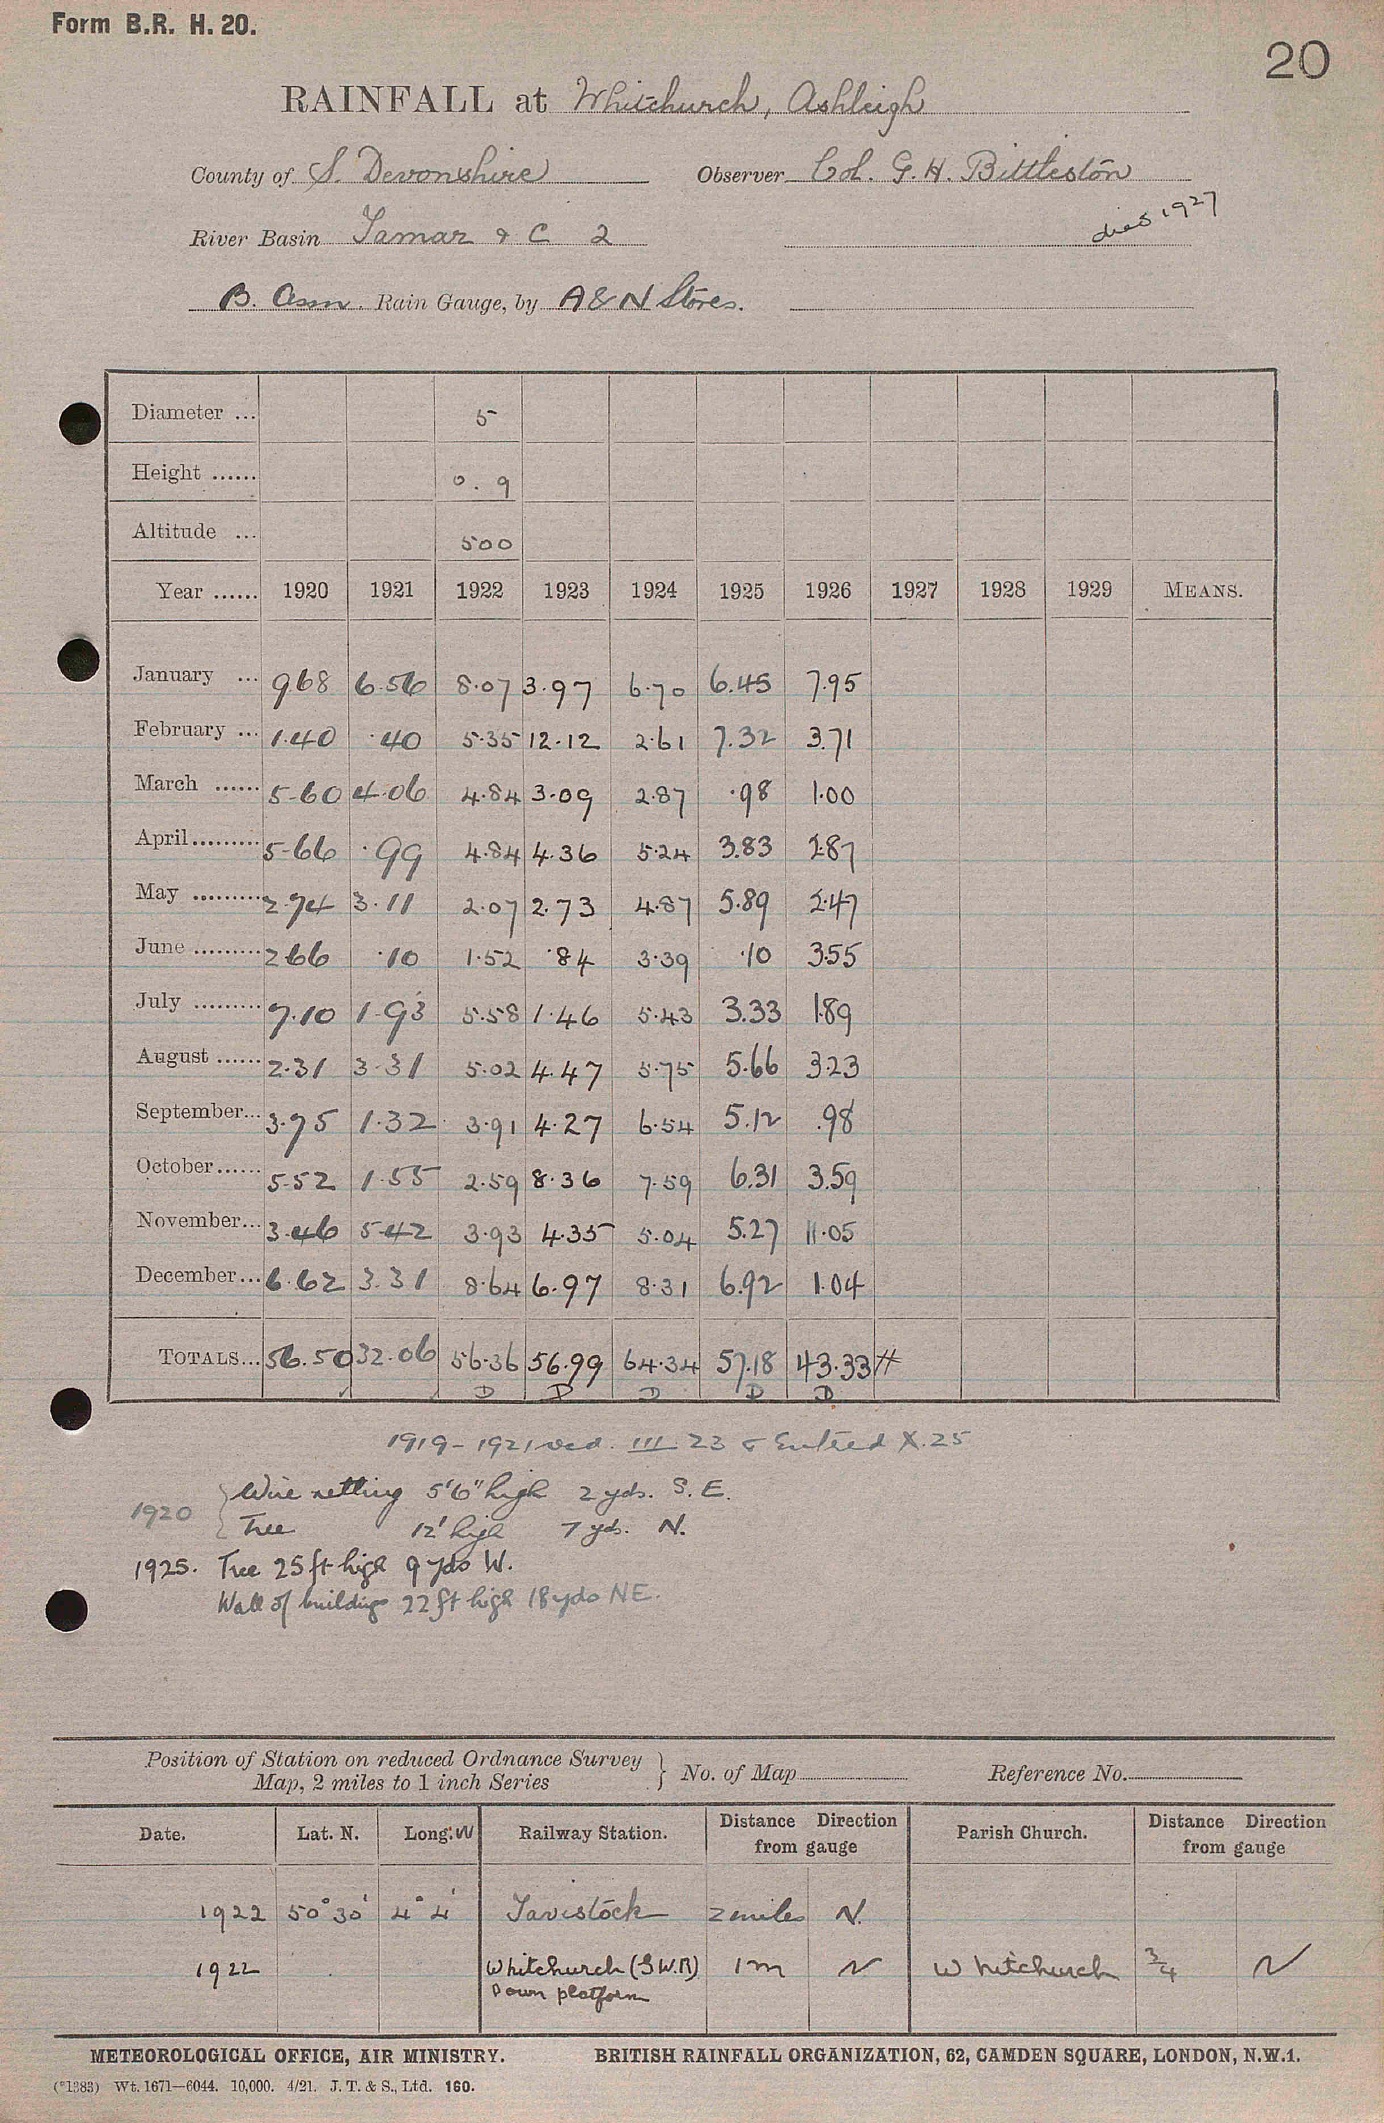 Form B.R. H. 20.
20
RAINFALL at Whitchurch, Ashleigh
County of S. Devonshire Observer Col. G. H. Bittleston
died 1927
River Basin Tamar & C 2
B. Assn. Rain Gauge, by A & N Stores.
Diameter ... 5
Height ...... 0. 9
Altitude ... 500
Year ...... 1920 1921 1922 1923 1924 1925 1926 1927 1928 1929 MEANS.
January ... 9.68 6.56 8.07 3.97 6.70 6.45 7.95
February ... 1.40 .40 5.35 12.12 2.61 7.32 3.71
March ...... 5.60 4.06 4.84 3.09 2.87 .98 1.00
April ......... 5.66 .99 4.84 4.36 5.24 3.83 2.87
May ......... 2.74 3.11 2.07 2.73 4.87 5.89 2.47
June ......... 2.66 .10 1.52 .84 3.39 .10 3.55
July ......... 7.10 1.93 5.58 1.46 5.43 3.33 1.89
August ...... 2.31 3.31 5.02 4.47 5.75 5.66 3.23
September... 3.75 1.32 3.91 4.27 6.54 5.12 .98
October...... 5.52 1.55 2.59 8.36 7.59 6.31 3.59
November... 3.46 5.42 3.93 4.35 5.04 5.27 11.05
December... 6.62 3.31 8.64 6.97 8.31 6.92 1.04
TOTALS... 56.50 32.06 56.36 56.99 64.34 57.18 43.33 #
D D D D D
1919 - 1921 recd. III 23 & Entered X.25
1920 { Wire netting 5'6" high 2 yds. S. E.
Tree 12' high 7 yds. N.
1925. Tree 25 ft high 9 yds W.
Wall of buildings 22 ft high 18 yds NE.
Position of Station on reduced Ordnance Survey Map, 2 miles to 1 inch Series } No. of Map Reference No.
Date. Lat. N. Long. W Railway Station. Distance Direction from gauge Parish Church. Distance Direction from gauge
1922 50° 30' 4° 4' Tavistock 2 miles N.
1922 Whitchurch (G.W.R) 1 m N Whitchurch 3/4 N
Down platform
METEOROLOGICAL OFFICE, AIR MINISTRY. BRITISH RAINFALL ORGANIZATION, 62, CAMDEN SQUARE, LONDON, N.W.1.
(*1383) Wt. 1671—6044. 10,000. 4/21. J. T. & S., Ltd. 160.